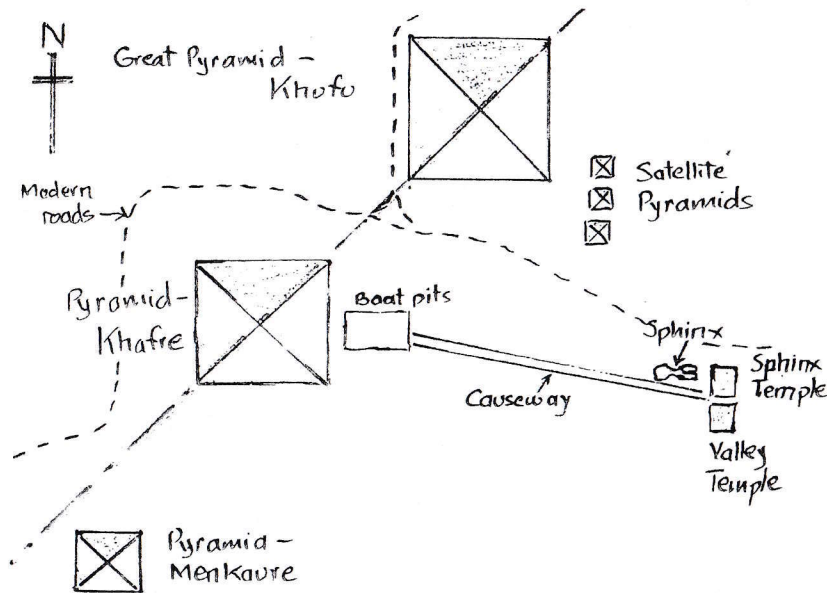 N
Great Pyramid –
Khufu
Modern
roads
Satellite
Pyramids
Pyramid –
Khafre
Boat pits
Sphinx
Sphinx
Temple
Causeway
Valley
Temple
Pyramid –
Menkaure